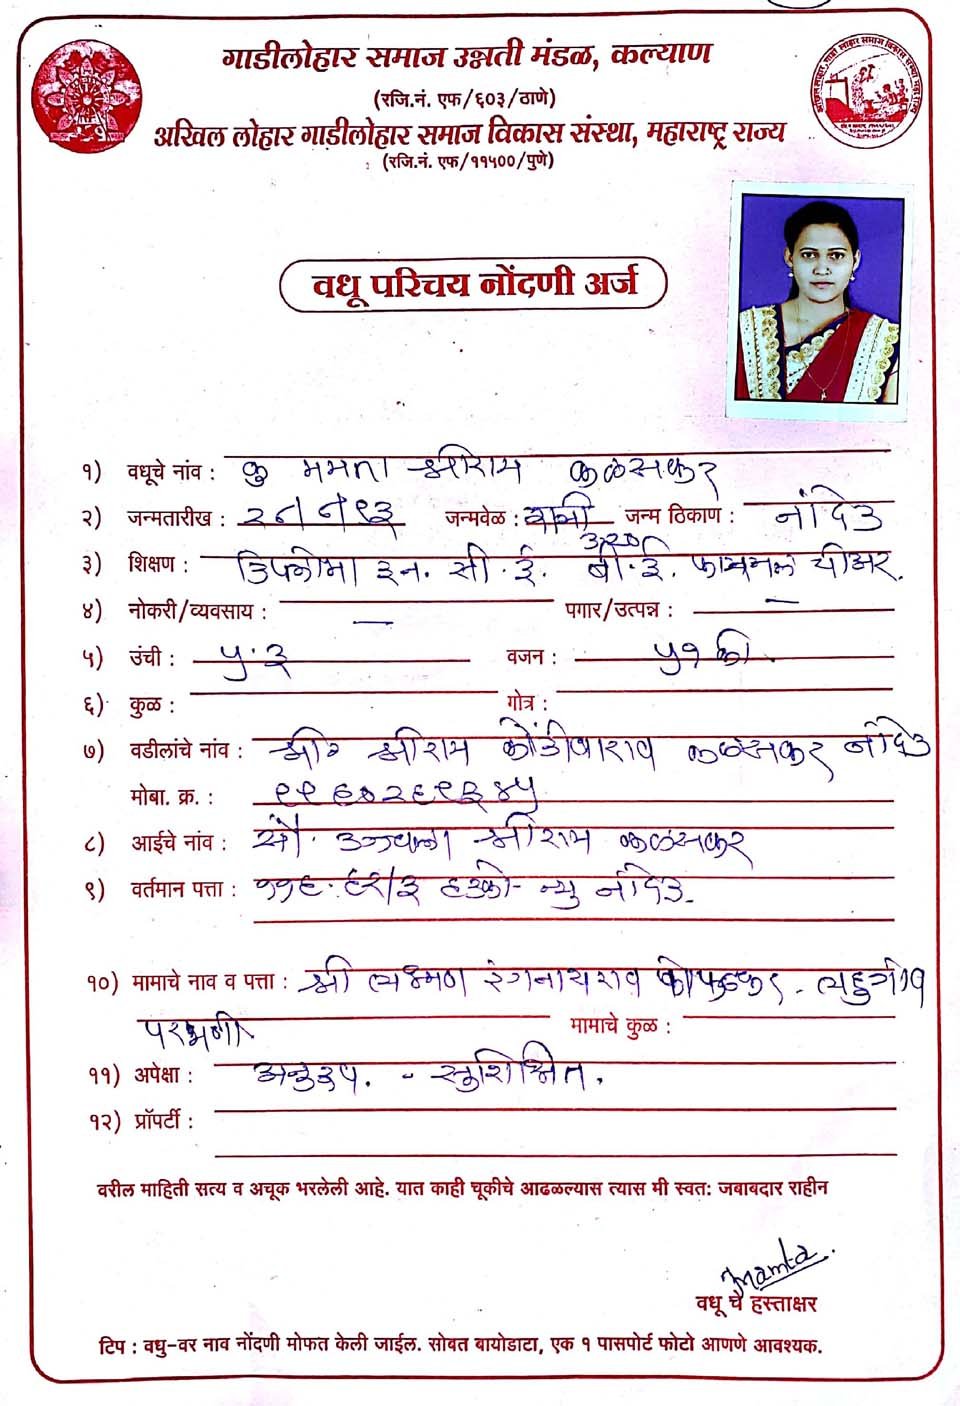 गाडीलोहार समाज उन्नती मंडळ, कल्याण
(रजि.नं. एफ/६०३/ठाणे)
अखिल लोहार गाडीलोहार समाज विकास संस्था, महाराष्ट्र राज्य
(रजि.नं. एफ/११५००/पुणे)
वधू परिचय नोंदणी अर्ज
१) वधूचे नांव : कु ममता श्रीराम कळसकर
२) जन्मतारीख : जन्मवेळ : रात्री ३.२० जन्म ठिकाण : नांदेड
३) शिक्षण : डिप्लोमा इन. सी. ई. बी. ई. फायनल यीअर.
४) नोकरी/व्यवसाय : — पगार/उत्पन्न : —
५) उंची : ५.३ वजन : ५१ की.
६) कुळ : गोत्र :
७) वडीलांचे नांव : श्री श्रीराम कोंडीबाराव कळसकर नांदेड
मोबा. क्र. : ९९६०२६९३४५
८) आईचे नांव : सौ. उज्वला श्रीराम कळसकर
९) वर्तमान पत्ता : हडको- न्यु नांदेड.
१०) मामाचे नाव व पत्ता : श्री लक्ष्मण रंगनाथराव
परभणी. मामाचे कुळ :
११) अपेक्षा : अनुरूप. - सुशिक्षित.
१२) प्रॉपर्टी :
वरील माहिती सत्य व अचूक भरलेली आहे. यात काही चूकीचे आढळल्यास त्यास मी स्वत: जबाबदार राहीन
Mamta.
वधू चे हस्ताक्षर
टिप : वधु-वर नाव नोंदणी मोफत केली जाईल. सोबत बायोडाटा, एक १ पासपोर्ट फोटो आणणे आवश्यक.